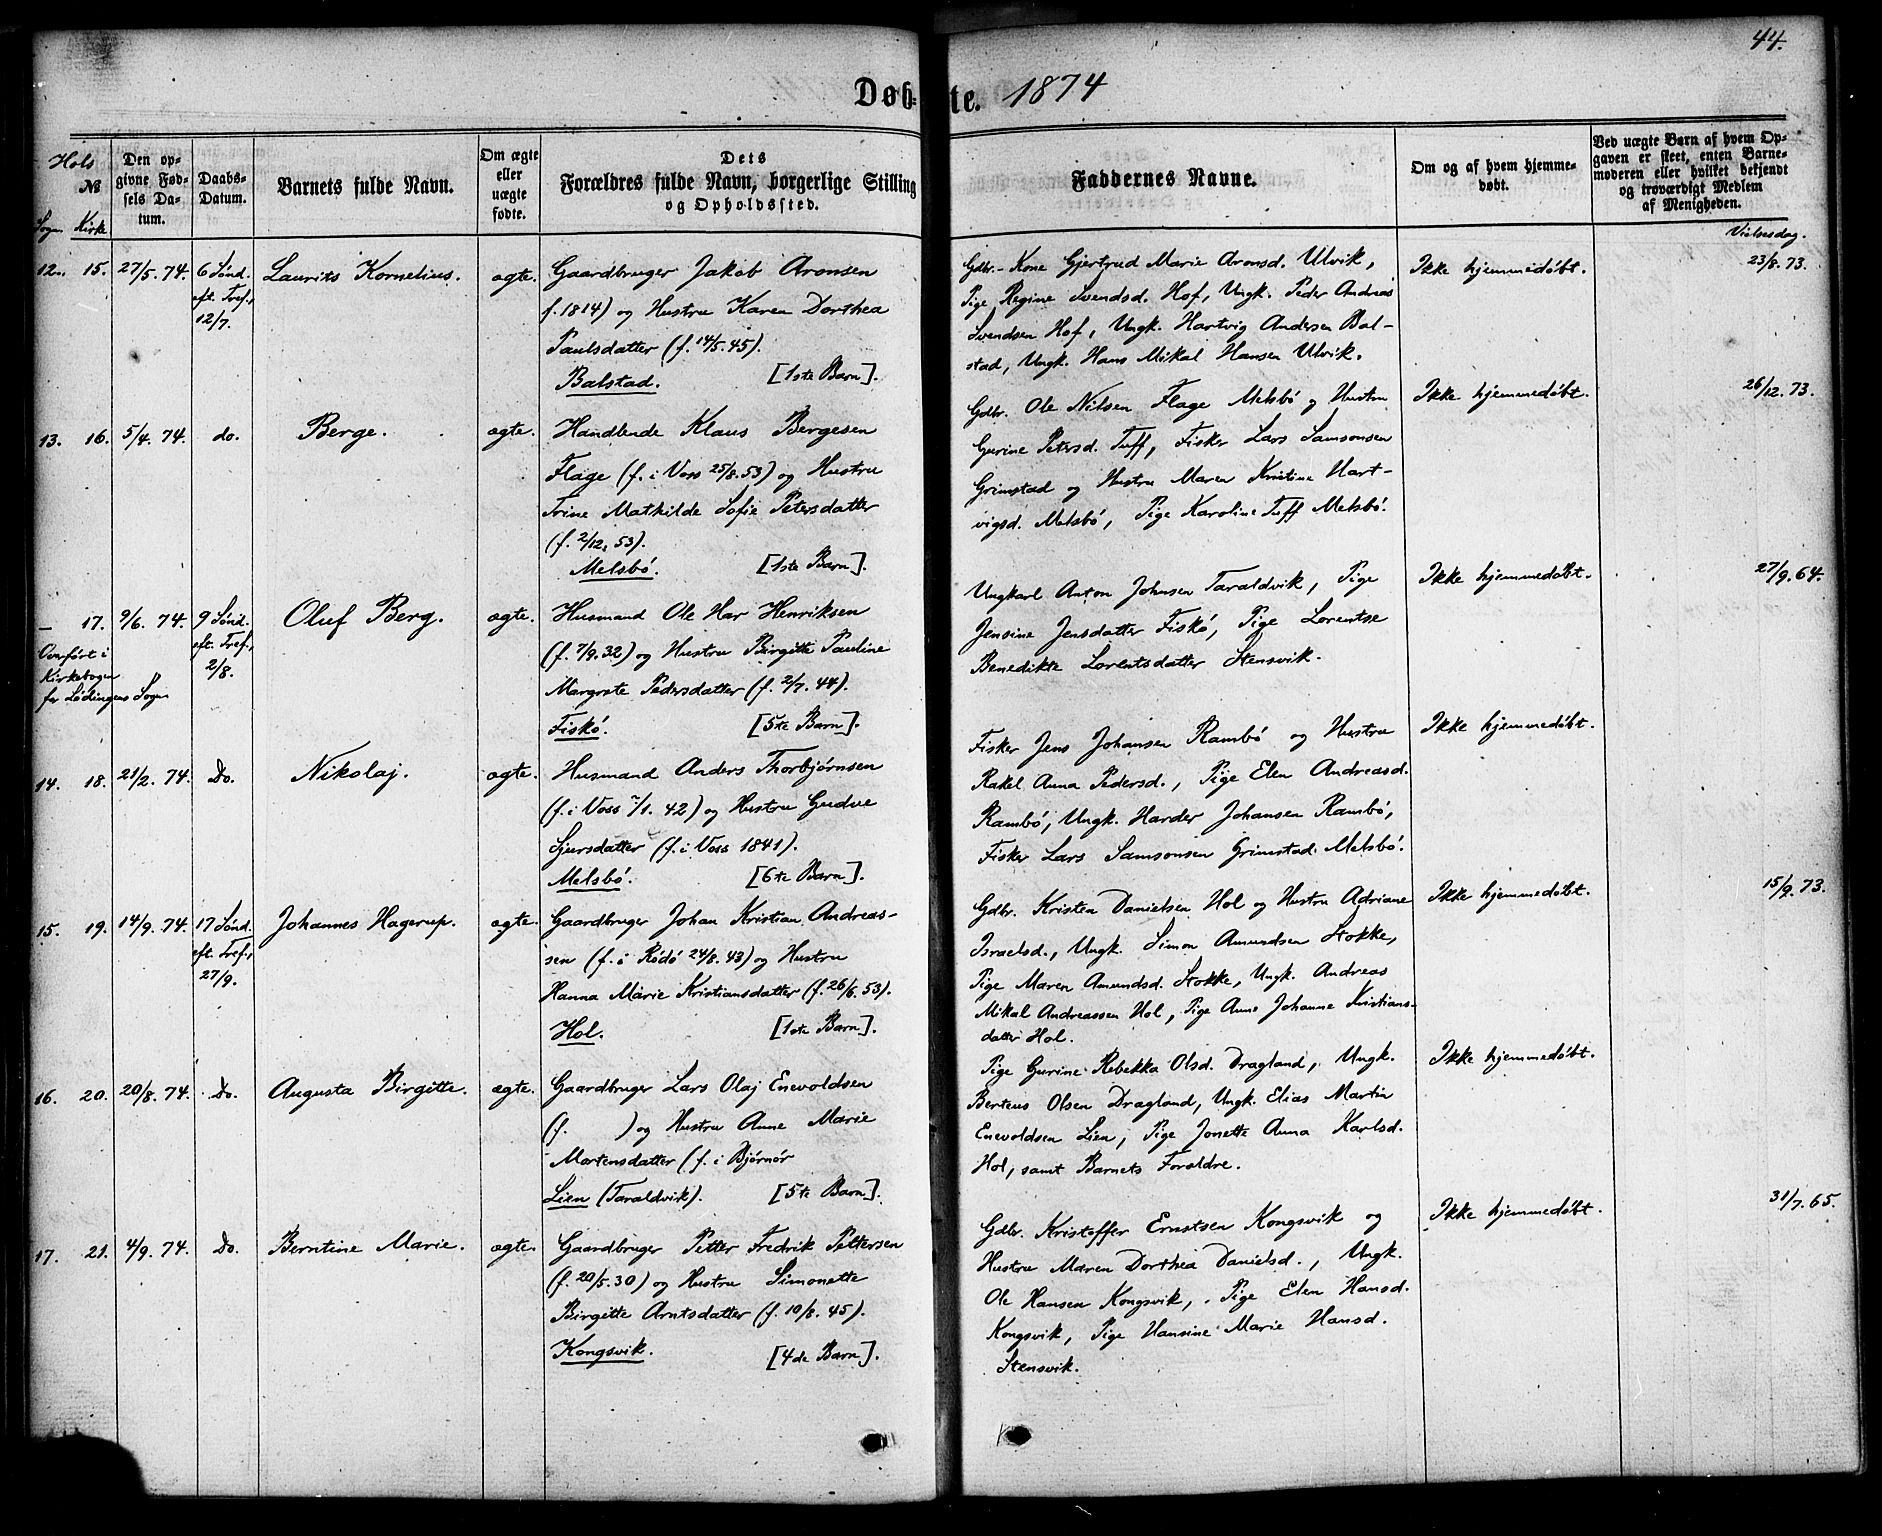 44.
Døb-te. 1874
Hols
№
Sogn Kirke
Den op-
givne Fød-
sels Da-
tum.
Daabs-
Datum.
Barnets fulde Navn.
Om ægte
eller
uægte
fødte.
Dets
Forældres fulde Navn, borgerlige Stilling
og Opholdssted.
Faddernes Navne.
Om og af hvem hjemme-
døbt.
Ved uægte Børn af hvem Op-
gaven er skeet, enten Barne-
moderen eller hvilket bekjendt
og troværdigt Medlem
af Menigheden.
Vielsesdag.
12. 15. 27/5. 74. 6 Sønd.
eft. Tref.,
12/7.
Laurits Kornelius. ægte.
Gaardbruger Jakob Aronsen
f. 1814) og Hustru Karen Dorthea
Paulsdatter (f. 14/5. 45).
Balstad. [1ste Barn].
Gdbr.- Kone Gjertrud Marie Aronsd. Ulvik,
Pige Regine Svendsd. Hof, Ungk. Peder Andreas
Svendsen Hof, Ungk. Hartvig Andersen Bal-
stad, Ungk. Hans Mikal Hansen Ulvik.
Ikke hjemmedøbt. 23/8. 73.
13. 16. 5/4. 74. do. Berge. ægte.
Handlende Klaus Bergesen
Flage (f. i Voss 25/8. 53) og Hustru
Trine Mathilde Sofie Petersdatter
(f. 2/12. 53).
Melsbø. [1ste Barn].
Gdbr. Ole Nilsen Flage Melsbø og Hustru
Gurine Petersd. Tuff, Fisker Lars Samsonsen
Grimstad og Hustru Maren Kristine Hart-
vigsd. Melsbø, Pige Karoline Tuff Melsbø.
Ikke hjemmedøbt. 26/12. 73.
— 17. 9/6. 74. 9 Sønd.
eft. Tref.,
2/8.
Overført i
Kirkebogen
for Lødingens Sogn
Oluf Berg. ægte.
Husmand Ole Har Henriksen
(f. 7/9. 32) og Hustru Birgitte Pauline
Margrete Pedersdatter (f. 2/7. 44).
Fiskø. [5te Barn].
Ungkarl Anton Johnsen Taraldvik, Pige
Jensine Jensdatter Fiskø, Pige Lorentse
Benedikte Lorentsdatter Stensvik.
Ikke hjemmedøbt. 27/9. 64.
14. 18. 21/2. 74. Do. Nikolaj. ægte.
Husmand Anders Thorbjørnsen
(f. i Voss 7/1. 42) og Hustru Gudve
Sjursdatter (f. i Voss 1841).
Melsbø. [6te Barn].
Fisker Jens Johansen Rambø og Hustru
Rakel Anna Pedersd., Pige Elen Andreasd.
Rambø, Ungk. Harder Johansen Rambø,
Fisker Lars Samsonsen Grimstad Melsbø.
Ikke hjemmedøbt.
15. 19. 14/9. 74. 17 Sønd.
eft. Tref.,
27/9.
Johannes Hagerup. ægte.
Gaardbruger Johan Kristian Andreas-
sen (f. i Rødø 24/8. 43) og Hustru
Hanna Marie Kristiansdatter (f. 26/6. 53).
Hol. [1ste Barn].
Gdbr. Kristen Danielsen Hol og Hustru Adriane
Israelsd., Ungk. Simon Amundsen Stokke,
Pige Maren Amundsd. Stokke, Ungk. Andreas
Mikal Andreassen Hol, Pige Anne Johanne Kristians-
datter Hol.
Ikke hjemmedøbt. 15/9. 73.
16. 20. 20/8. 74. Do. Augusta Birgitte. ægte.
Gaardbruger Lars Olaj Enevoldsen
(f. ) og Hustru Anne Marie
Martensdatter (f. i Bjørnør
Lien (Taraldvik). [5te Barn].
Pige Gurine Rebekka Olsd. Dragland, Ungk.
Berteus Olsen Dragland, Ungk. Elias Martin
Enevoldsen Lien, Pige Jonette Anna Karlsd.
Hol, samt Barnets Forældre.
Ikke hjemmedøbt.
17. 21. 4/9. 74. Do. Berntine Marie. ægte.
Gaardbruger Petter Fredrik Pettersen
(f. 20/5. 30) og Hustru Simonette
Birgitte Arntsdatter (f. 10/8. 45).
Kongsvik. [4de Barn].
Gdbr. Kristoffer Ernstsen Kongsvik og
Hustru Maren Dorthea Danielsd., Ungk.
Ole Hansen Kongsvik, Pige Elen Hansd.
Kongsvik, Pige Hansine Marie Hansd.
Stensvik.
Ikke hjemmedøbt. 31/7. 65.